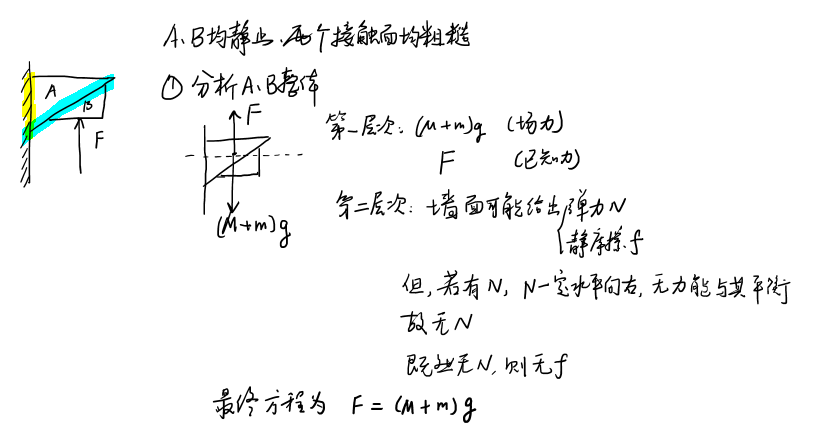 A、B均静止、两个接触面均粗糙
① 分析A、B整体
A
B
F
F
(M+m)g
第一层次: (M+m)g (场力)
F (已知力)
第二层次: 墙面可能给出弹力N
静摩擦f
但, 若有N, N一定水平向右, 无力能与其平衡
故无N
既然无N, 则无f
最终方程为 F = (M+m)g